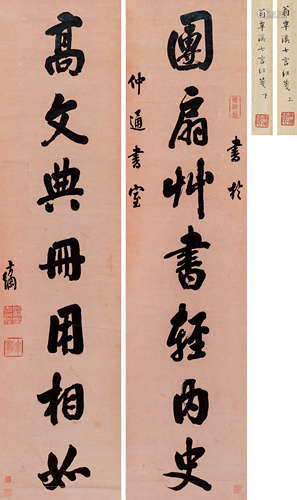 團扇艸書輕內史
書於
仲通書室
高文典冊用相如
翁覃溪七言紅箋 上
翁覃溪七言紅箋 下